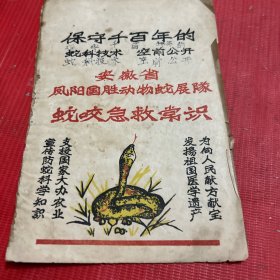 保守千百年的
蛇科技术 空前公开
安徽省
凤阳国胜动物蛇展队
蛇咬急救常识
为向人民献方献宝
发扬祖国医学遗产
支援国家大办农业
宣传防蛇科学知识